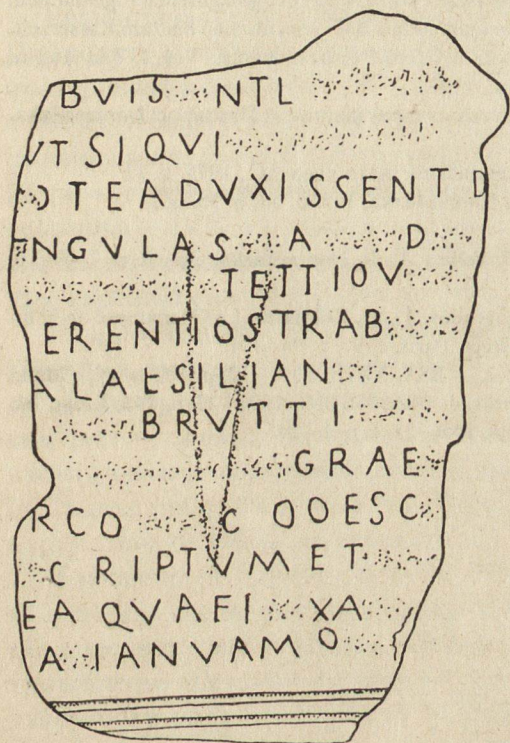 BVIS NTL
VT SI QVI
OTEADVXISSENT D
NGVLAS A D
TETTIOV
ERENTIOSTRAB
ALAESILIAN
BRVTTI
GRAE
RCO C OOESC
CRIPTVM ET
EA QVAFI XA
A IANVAMO